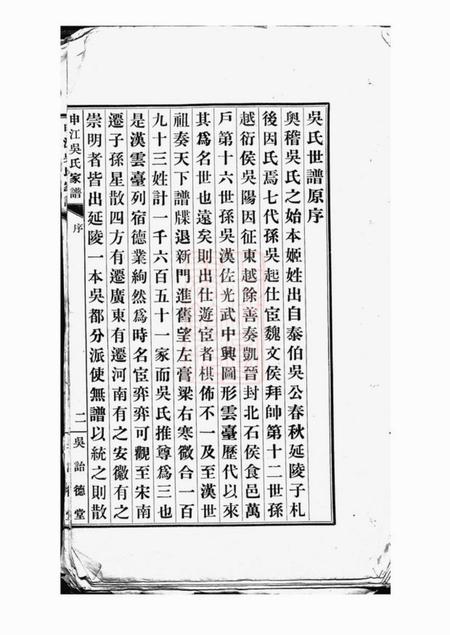 吳氏世譜原序
輿稽吳氏之始本姬姓出自泰伯吳公春秋延陵子札
後因氏焉七代孫吳起仕宦魏文侯拜帥第十二世孫
越衍侯吳陽因征東越餘善奏凱晉封北石侯食邑萬
戶第十六世孫吳漢佐光武中興圖形雲臺歷代以來
其爲名世也遠矣則出仕遊宦者棋佈不一及至漢世
祖奏天下譜牒退新門進舊望左膏粱右寒微合一百
九十三姓計一千六百五十一家而吳氏推尊爲三也
是漢雲臺列宿德業絢然爲時名宦弈弈可觀至宋南
遷子孫星散四方有遷廣東有遷河南有之安徽有之
崇明者皆出延陵一本吳都分派使無譜以統之則散
申江吳氏家譜
序
二
吳詒德堂